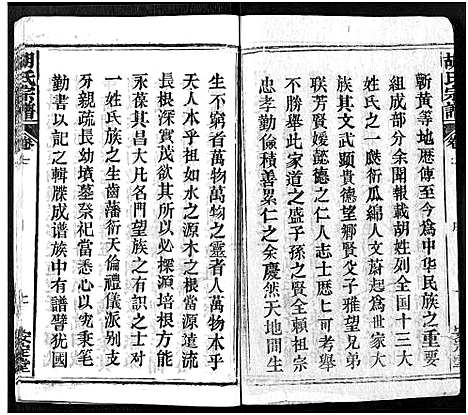 胡氏宗譜
蘄黃等地歷傳至今為中華民族之重要
組成部分余閱報載胡姓列全国十三大
姓氏之一瓞衍瓜綿人文蔚起為世家大
族其文武顕貴德望鄉賢父子雅望兄弟
联芳賢媛懿德之仁人志士歷曆有人数
不勝舉此家道之盛子孫之賢全賴祖宗
忠孝勤儉積善之余慶然天地間生
生不窮者萬物萬物之靈者人本乎
天人本乎祖如水之源木之根當源遠流
長根深實茂欲其所以必探源培根方能
永葆其昌大凡名門望族之有识之士对
一姓氏族之生齒藩衍天倫禮儀派别支
分親疏長幼墳墓祭祀當悉心以究秉筆
勤書以記之輯牒成谱族中有譜譬犹國
胡氏宗譜
安定堂